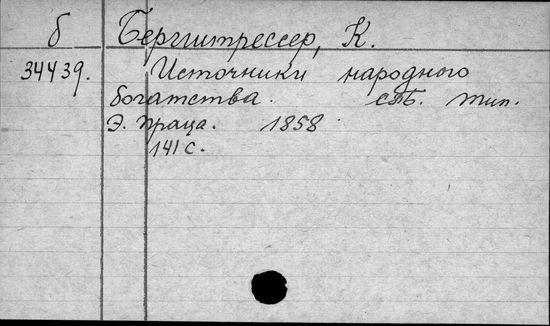 б Бергштрессер, К.
34439. Источники народного
богатства. спб. тип.
Э. Праца. 1858.
141 с.